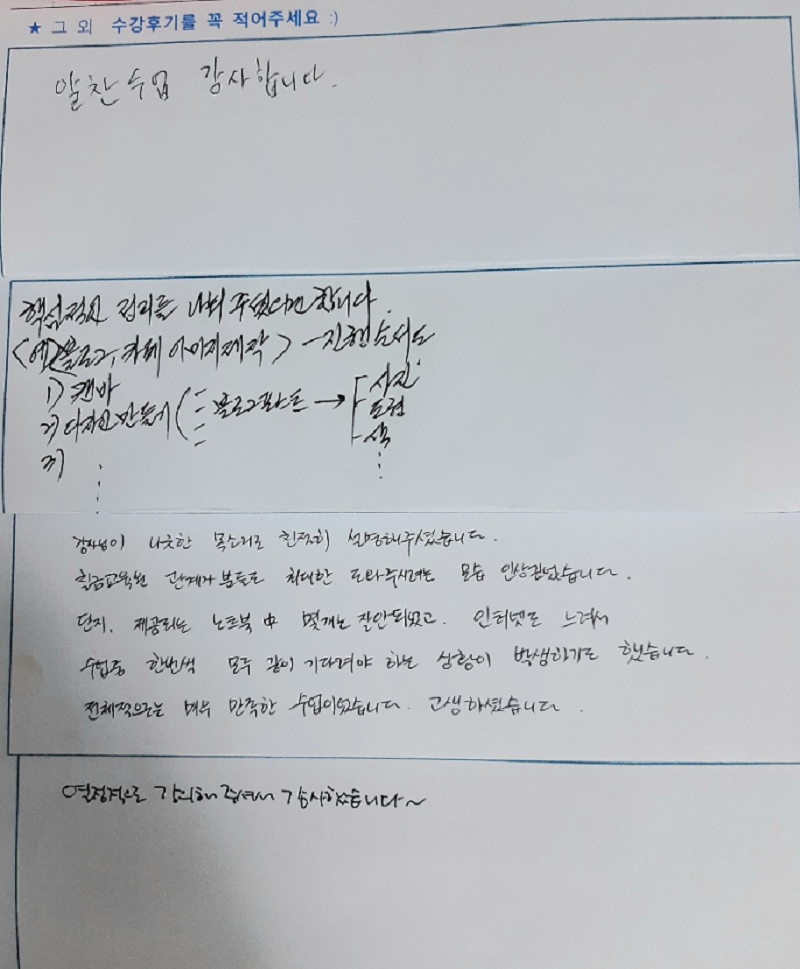 ★ 그 외 수강후기를 꼭 적어주세요 :)
알찬수업 감사합니다.
핵심적인 정리를 나눠 주셨다면 합니다.
<예>블로그, 카페 이미지제작> -진행순서도
1) 캔바
2) 디자인만들기 ( 블로그파트 → 사진
도형
색
3)
강사님이 나긋한 목소리로 친절히 설명해주셨습니다.
관계자분들도 최대한 도와주시려는 모습 인상깊었습니다.
단지, 제공되는 노트북 中 몇개는 잘안되었고. 인터넷도 느려서
수업중 한번씩 모두 같이 기다려야 하는 상황이 발생하기도 했습니다.
전체적으로는 매우 만족한 수업이었습니다. 고생하셨습니다.
열정적으로 강의해 주셔서 감사했습니다~